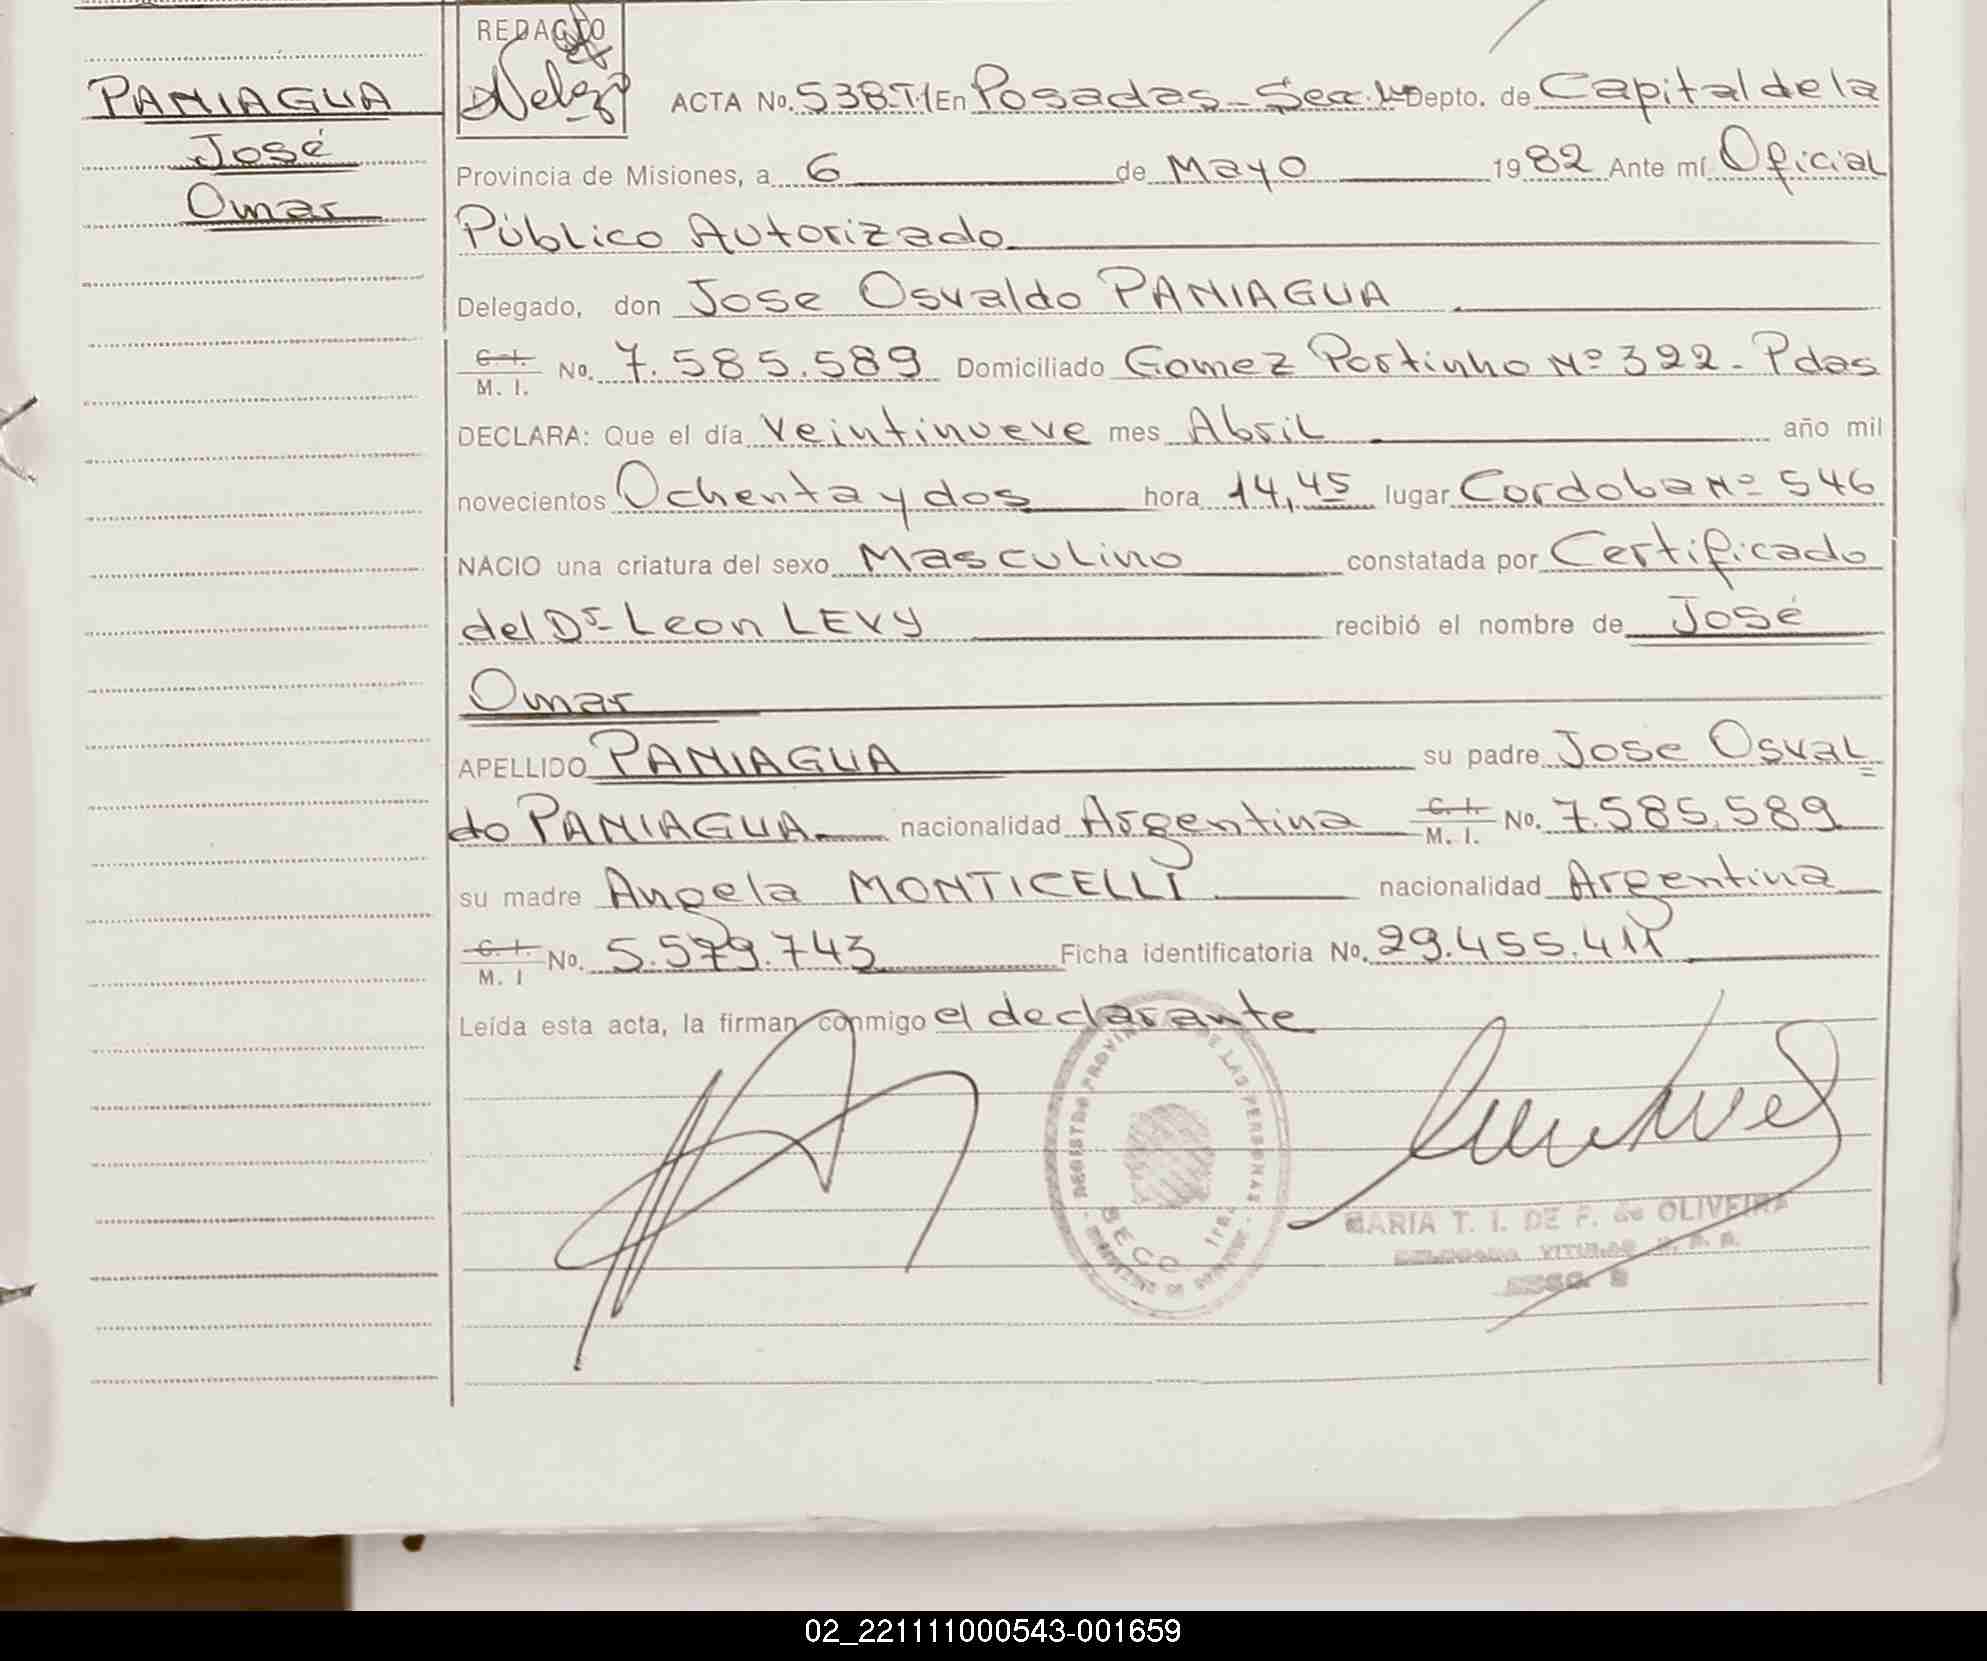 PANIAGUA
José
Omar
REDACTO
ACTA No. 538.T.1 En Posadas - Secc. Depto. de Capital de la
Provincia de Misiones, a 6 de Mayo 1982 Ante mí Oficial
Público Autorizado
Delegado, don Jose Osvaldo PANIAGUA
C. I. M. I. No. 7.585.589 Domiciliado Gomez Portinho Nº 322 - Pdas
DECLARA: Que el día veintinueve mes Abril año mil
novecientos Ochenta y dos hora 14,45 lugar Cordoba Nº 546
NACIO una criatura del sexo Masculino constatada por Certificado
del Dr Leon LEVY recibió el nombre de José
Omar
APELLIDO PANIAGUA su padre Jose Osval
do PANIAGUA nacionalidad Argentina C. I. M. I. No. 7.585.589
su madre Angela MONTICELLI nacionalidad Argentina
C. I. M. I No. 5.579.743 Ficha identificatoria No. 29.455.411
Leída esta acta, la firman conmigo el declarante
REGIST. DE PROVIN DE LAS PERSONAS
SECC 1ra.
MARIA T. I. DE F. de OLIVEIRA
TITULAR
02_221111000543-001659